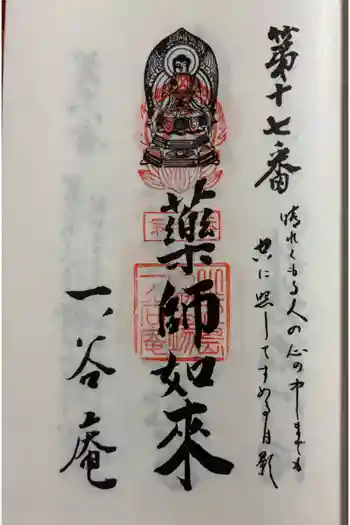 第十七番
晴れくもる人の心の中しまも
共に照してすめる月影
藥師如來
一谷庵